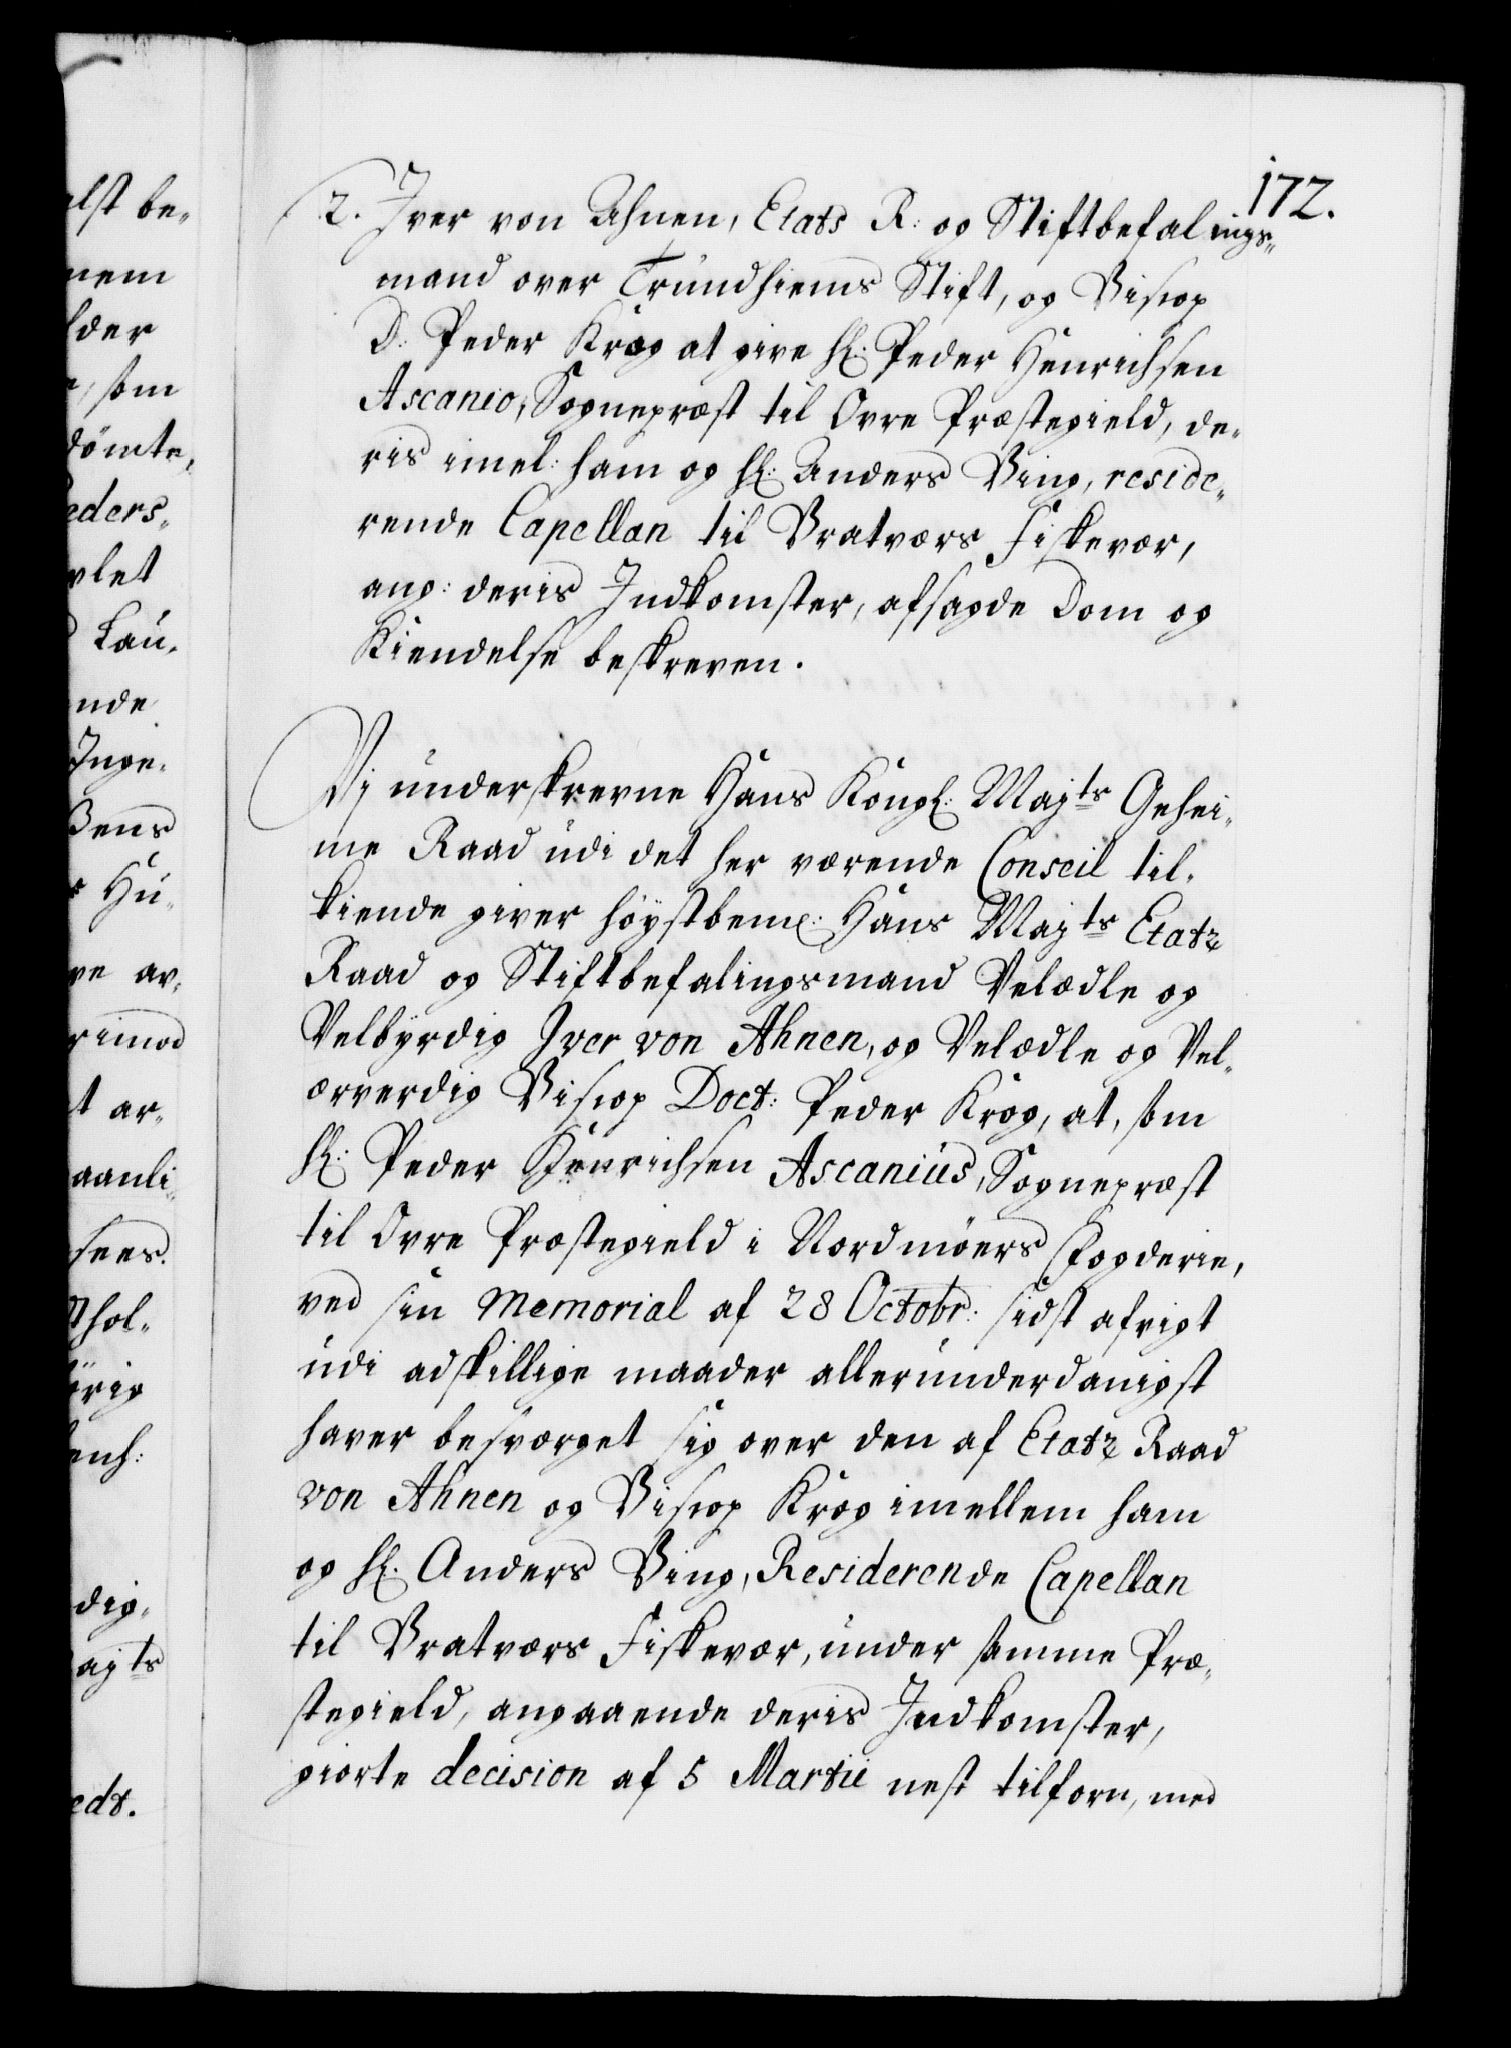 172.
2. Iver von Ahnen, Etats R: og Stiftbefalings-
mand over Trundhiems Stift, og Biscop
D: Peder Krog at give Hr: Peder Henrichsen
Ascanio, Sognepræst til Ovre Præstegield, de-
ris imel: ham og Hr: Anders Bing, reside-
rende Capellan til Bratværs Fiskevær,
ang: deris Indkomster, afsagde Dom og
Kiendelse beskreven.
Vj underskrevne Hans Kongl: Majts Gehei-
me Raad udi det her værende Conseil til-
kiende giver høystbemt: Hans Majts Etatz
Raad og Stiftbefalingsmand Velædle og
Velbyrdig Iver von Ahnen, og Velædle og Vel-
ærverdig Biscop Doct: Peder Krog, at, som
Hr: Peder Henrichsen Ascanius, Sognepræst
til Ovre Præstegield i Nordmöers Fogderie,
ved sin Memorial af 28 Octobr: sidst afvigt
udi adskillige maader allerunderdanigst
haver besværget sig over den af Etatz Raad
von Ahnen og Biscop Krog imellem ham
og Hr: Anders Bing, Residerende Capellan
til Bratværs Fiskevær, under samme Præ-
stegield, angaaende deris Indkomster,
giorte decision af 5 Martii nest tilforn, med
alst be-
nem
lder
som
dömte,
eders-
vlet
Lau-
nde
Inge-
Bens
Hu-
ve av-
rimod
t ar-
aanli-
sees.
hol-
örig
enh:
dig-
ajts
edt.